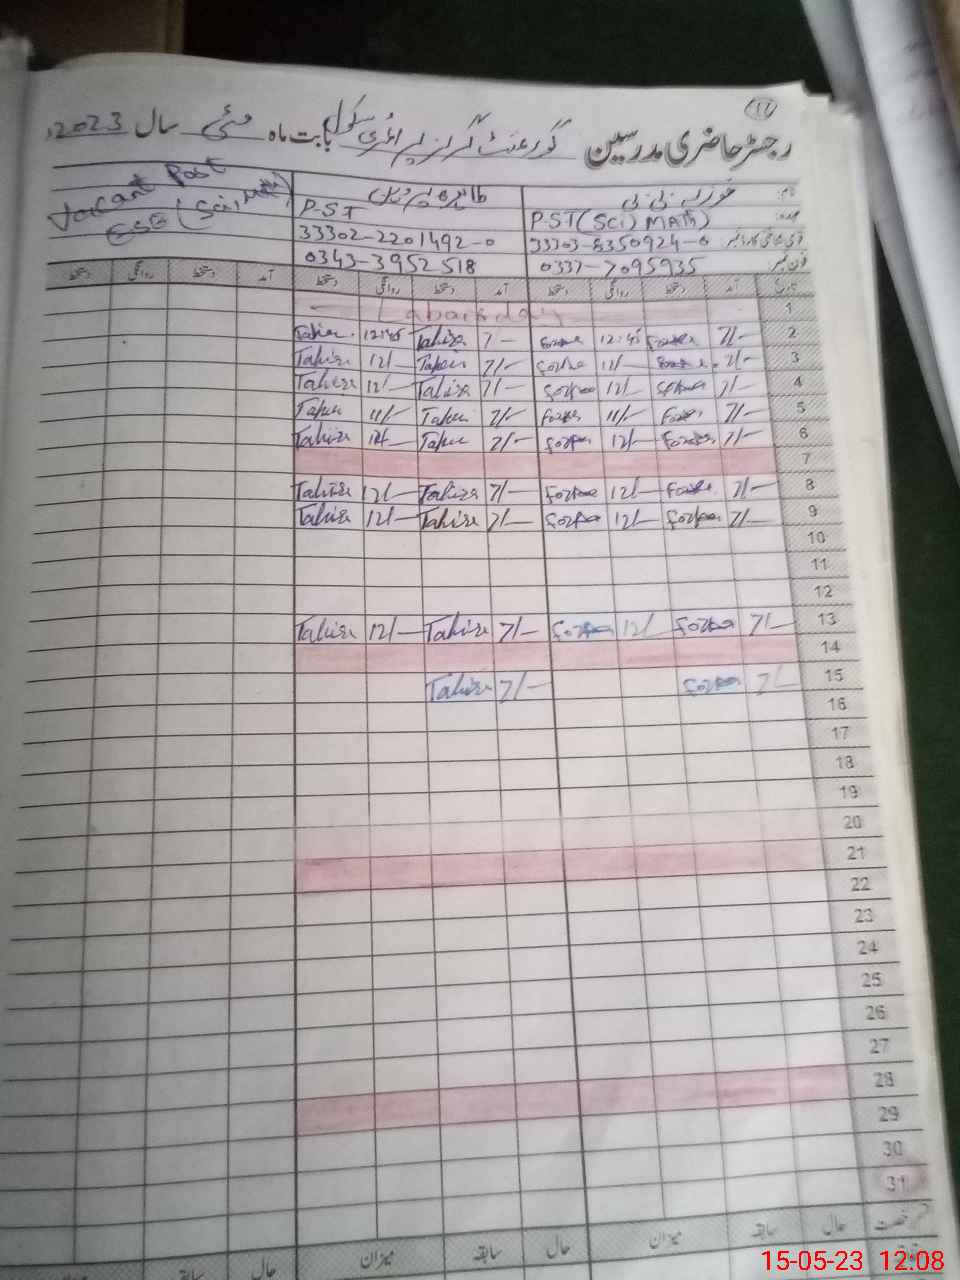 11
رجسٹر حاضری مدرسین گورنمنٹ گرلز پرائمری سکول بابت ماہ مئی سال 2023ء
نام: فوزیہ بی بی طاہرہ پروین Vacant Post
عہدہ: PST (Sci, Math) P-ST ESE (Sci, Math)
قومی شناختی کارڈ نمبر 33303-8350924-0 33302-2201492-0
فون نمبر: 0337-7095935 0343-3952518
تاریخ آمد دستخط روانگی دستخط آمد دستخط روانگی دستخط آمد دستخط روانگی دستخط
1 Labour day
Tahira 12:45 Tahira 7/- Fozia 12:45 Fozia 7/- 2
Tahira 12/- Tahira 7/- Fozia 12/- Fozia 7/- 3
Tahira 12/- Tahira 7/- Fozia 12/- Fozia 7/- 4
Tahira 11/- Tahira 7/- Fozia 11/- Fozia 7/- 5
Tahira 12/- Tahira 7/- Fozia 12/- Fozia 7/- 6
7
Tahira 12/- Tahira 7/- Fozia 12/- Fozia 7/- 8
Tahira 12/- Tahira 7/- Fozia 12/- Fozia 7/- 9
10
11
12
Tahira 12/- Tahira 7/- Fozia 12/- Fozia 7/- 13
14
Tahira 7/- Fozia 7/- 15
16
17
18
19
20
21
22
23
24
25
26
27
28
29
30
31
حال سابقہ میزان حال سابقہ میزان حال سابقہ
15-05-23 12:08